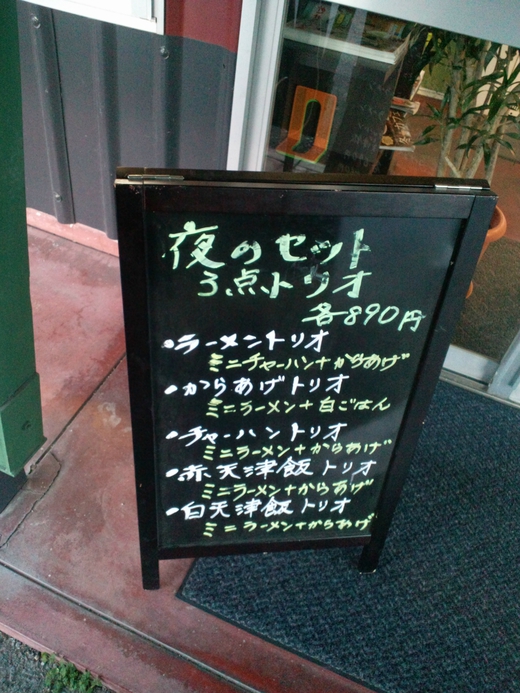 夜のセット
3点トリオ
各890円
•ラーメントリオ
ミニチャーハン+からあげ
•からあげトリオ
ミニラーメン+白ごはん
•チャーハントリオ
ミニラーメン+からあげ
•赤天津飯トリオ
ミニラーメン+からあげ
•白天津飯トリオ
ミニラーメン+からあげ